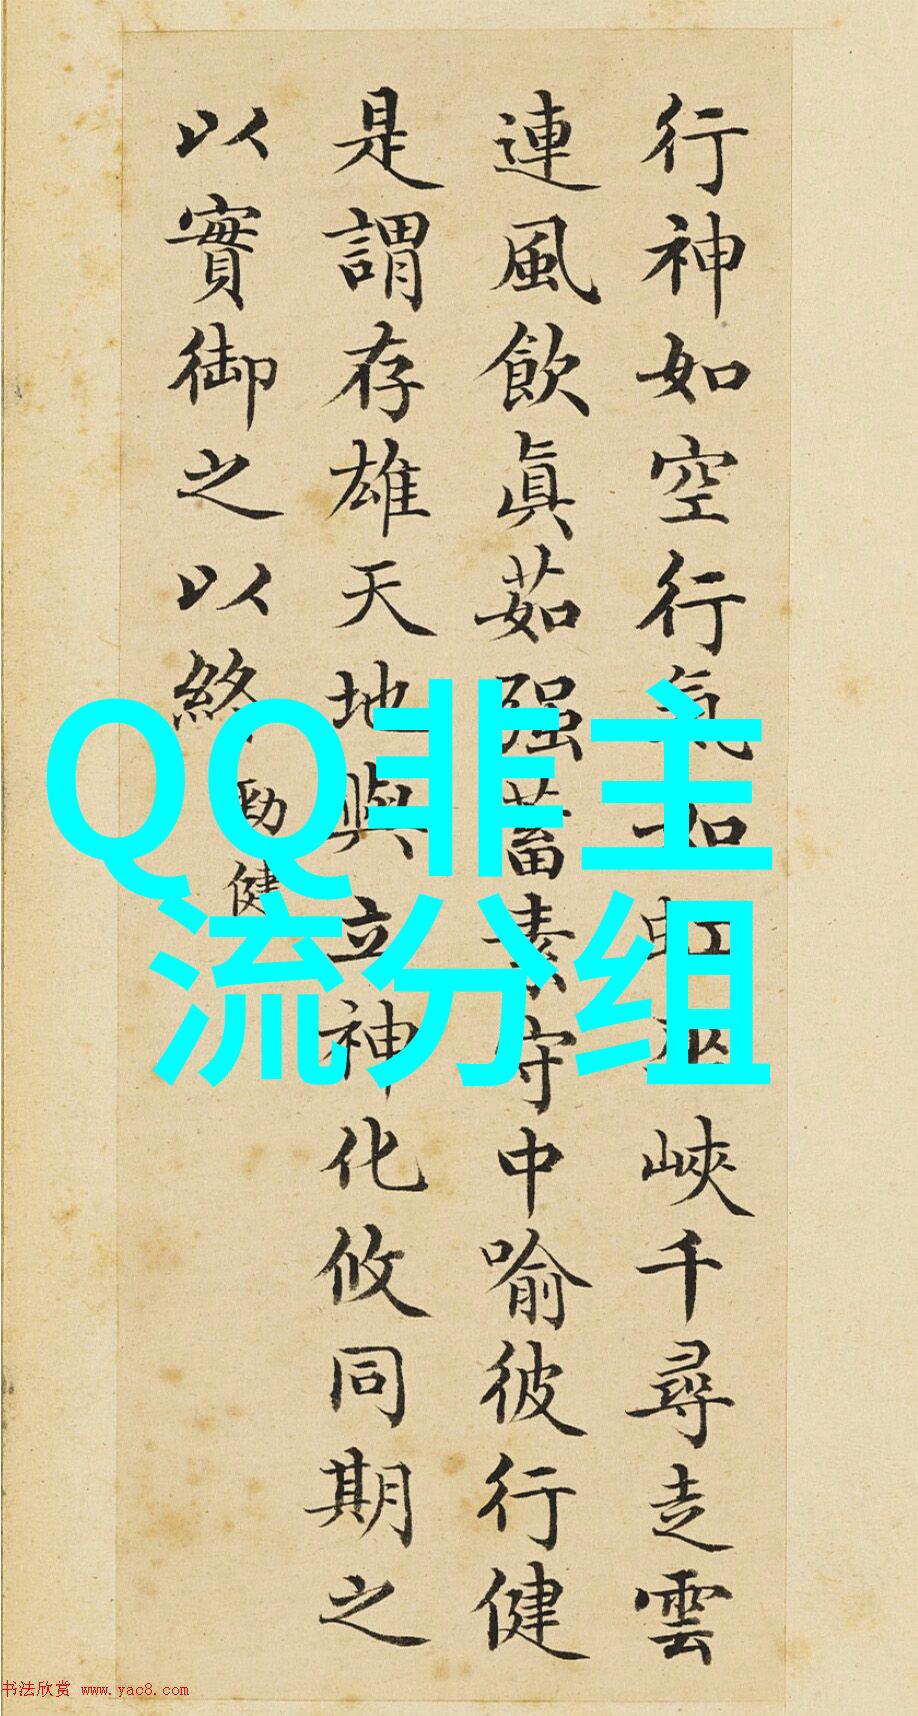 行神如空行氣如虹巫峽千尋走雲
連風飲眞茹强蓄素守中喻彼行健
是謂存雄天地與立神化攸同期之
以實御之以終 勁健
QQ非主
流分组
书法欣赏 www.yac8.com